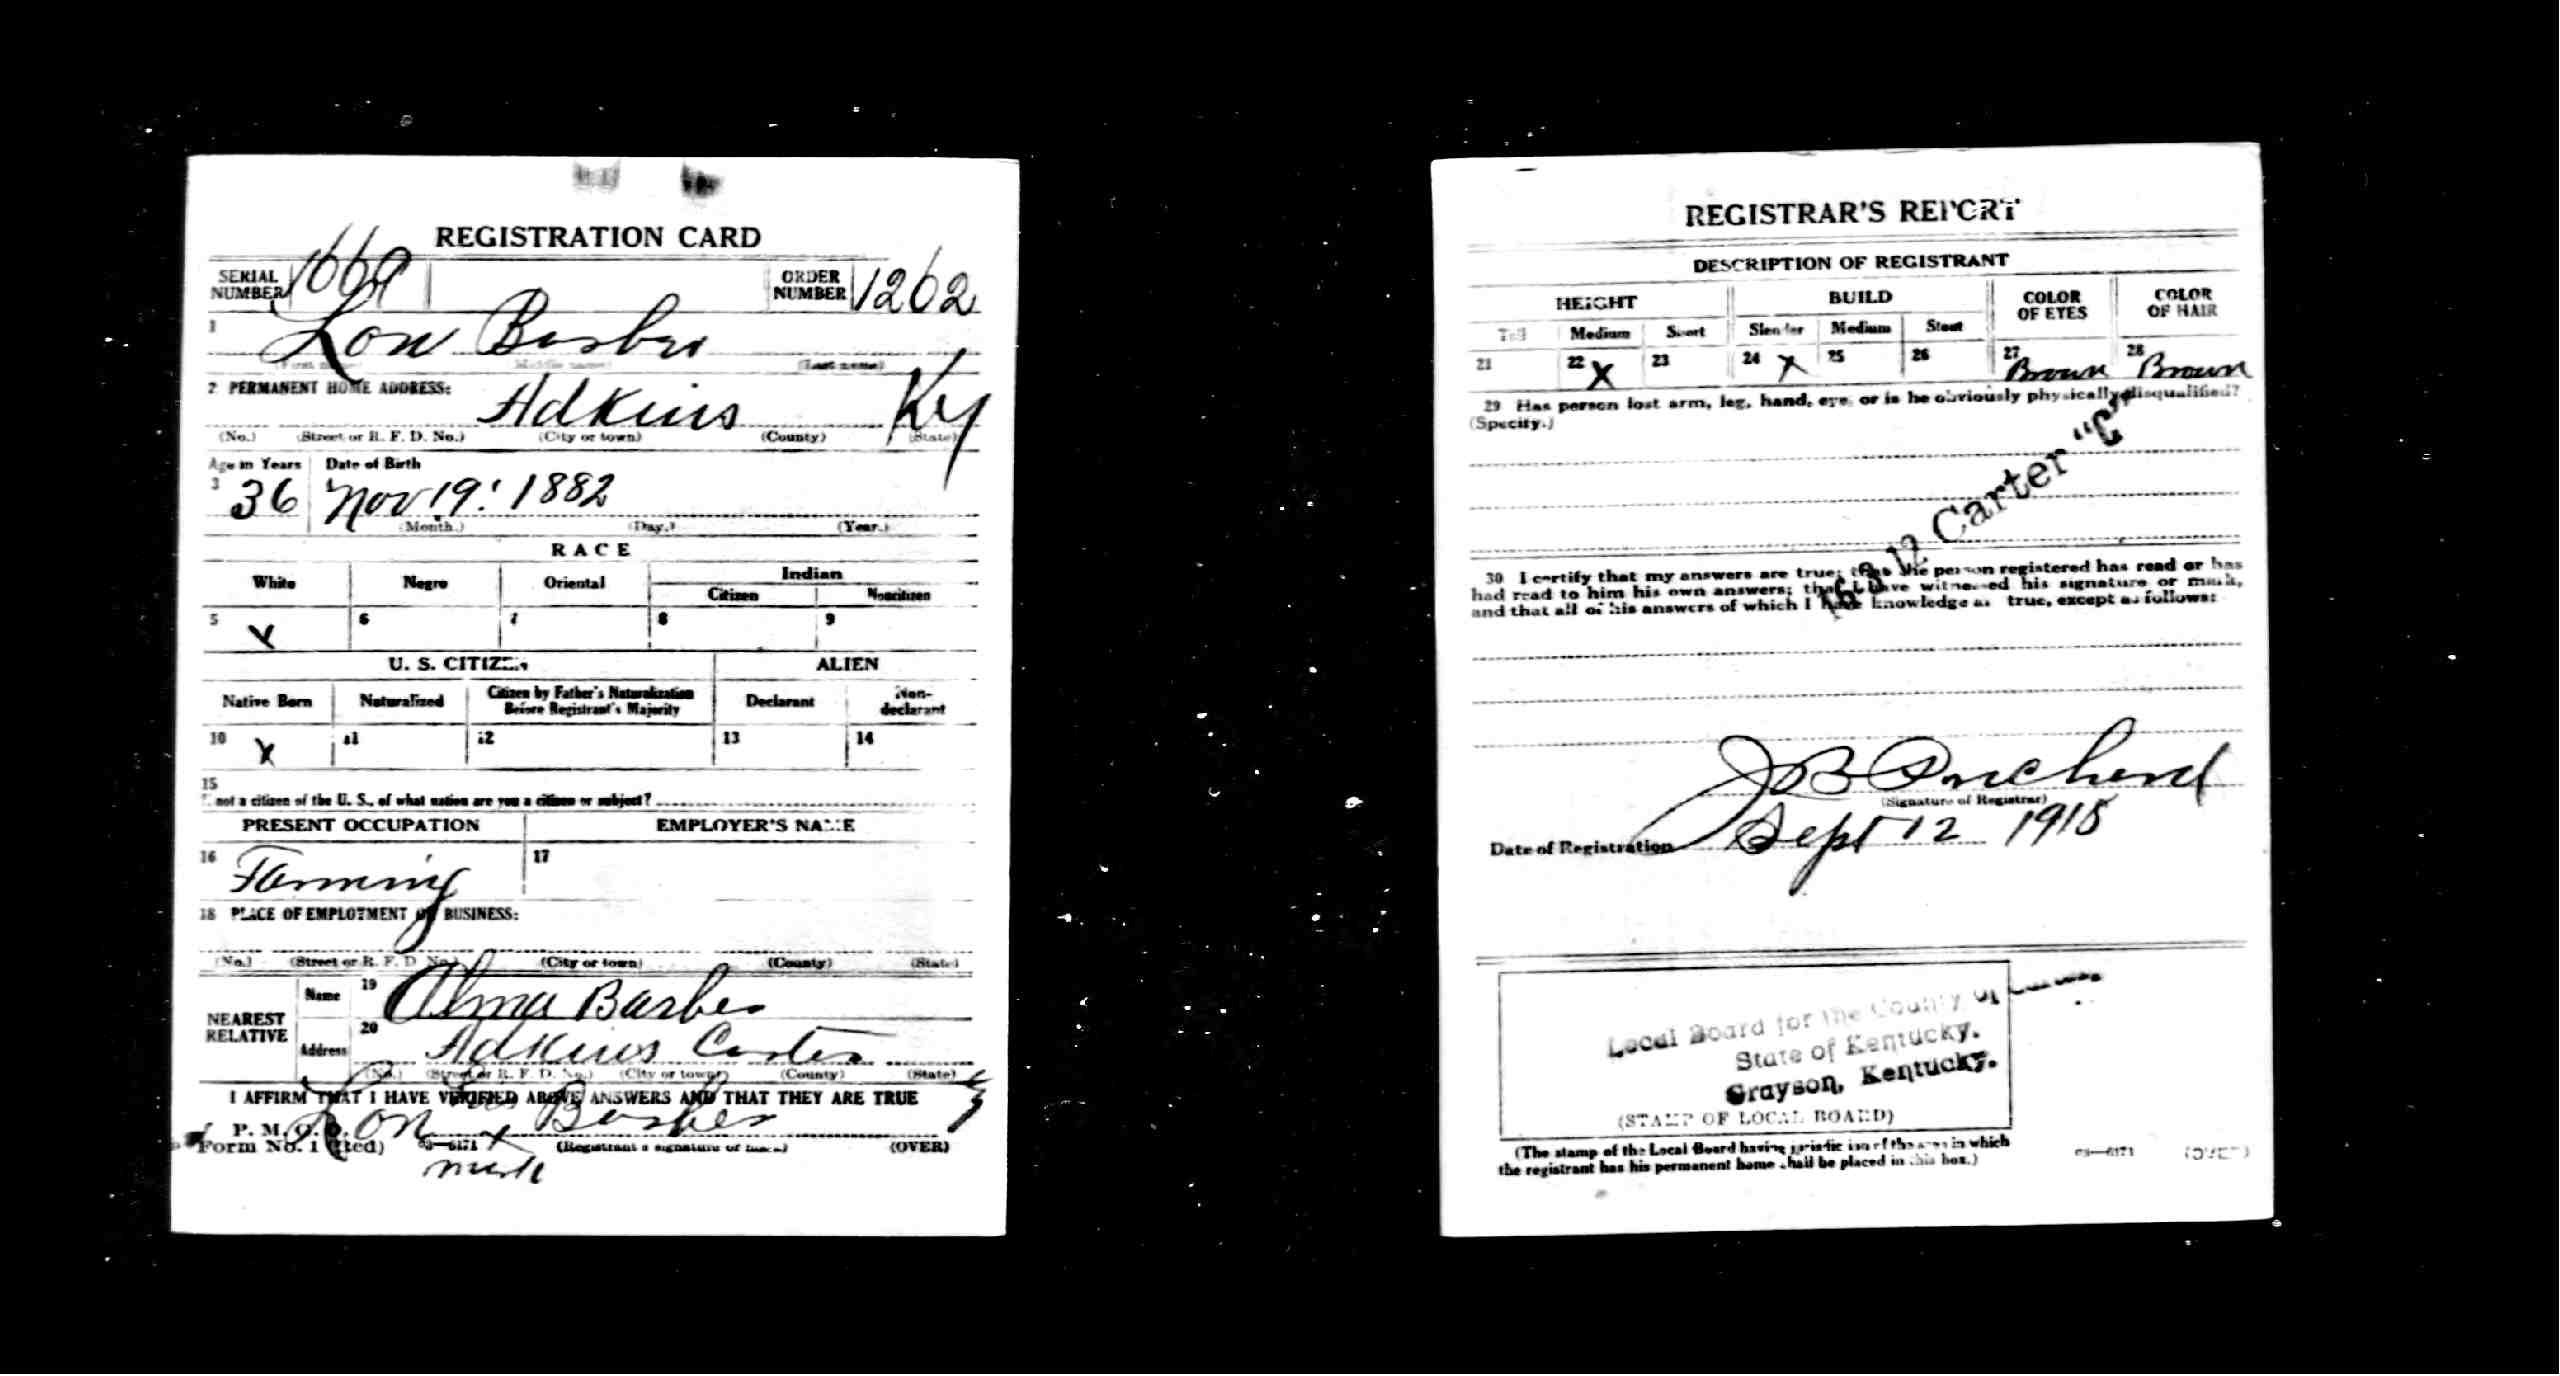 REGISTRATION CARD
SERIAL NUMBER 1669 ORDER NUMBER 1262
1 Lon Barber
(First name) (Middle name) (Last name)
2 PERMANENT HOME ADDRESS:
Adkins Ky
(No.) (Street or R. F. D. No.) (City or town) (County) (State)
Age in Years Date of Birth
3 36 Nov 19 1882
(Month.) (Day.) (Year.)
RACE
White Negro Oriental Indian
Citizen Noncitizen
5 X 6 7 8 9
U. S. CITIZEN ALIEN
Native Born Naturalized Citizen by Father's Naturalization Before Registrant's Majority Declarant Non-declarant
10 X 11 12 13 14
15
not a citizen of the U. S., of what nation are you a citizen or subject?
PRESENT OCCUPATION EMPLOYER'S NAME
16 Farming 17
18 PLACE OF EMPLOYMENT OR BUSINESS:
(No.) (Street or R. F. D. No.) (City or town) (County) (State)
NEAREST RELATIVE Name 19 Alma Barber
Address 20 Adkins Carter Ky
(No.) (Street or R. F. D. No.) (City or town) (County) (State)
I AFFIRM THAT I HAVE VERIFIED ABOVE ANSWERS AND THAT THEY ARE TRUE
P. M. G. O.
Form No. 1 (Red) 03—6171 (Registrant's signature or mark) (OVER)
Lon his X Barber
mark
REGISTRAR'S REPORT
DESCRIPTION OF REGISTRANT
HEIGHT BUILD COLOR OF EYES COLOR OF HAIR
Tall Medium Short Slender Medium Stout
21 22 X 23 24 X 25 26 27 Brown 28 Brown
29 Has person lost arm, leg, hand, eye, or is he obviously physically disqualified?
(Specify.)
16 3 12 Carter "C"
30 I certify that my answers are true; that the person registered has read or has
had read to him his own answers; that I have witnessed his signature or mark,
and that all of his answers of which I have knowledge are true, except as follows:
J B Prichard
(Signature of Registrar)
Date of Registration Sept 12 1918
Local Board for the County of Carter
State of Kentucky.
Grayson, Kentucky.
(STAMP OF LOCAL BOARD)
(The stamp of the Local Board having jurisdiction of the area in which
the registrant has his permanent home shall be placed in this box.)
03—6171 (OVER)